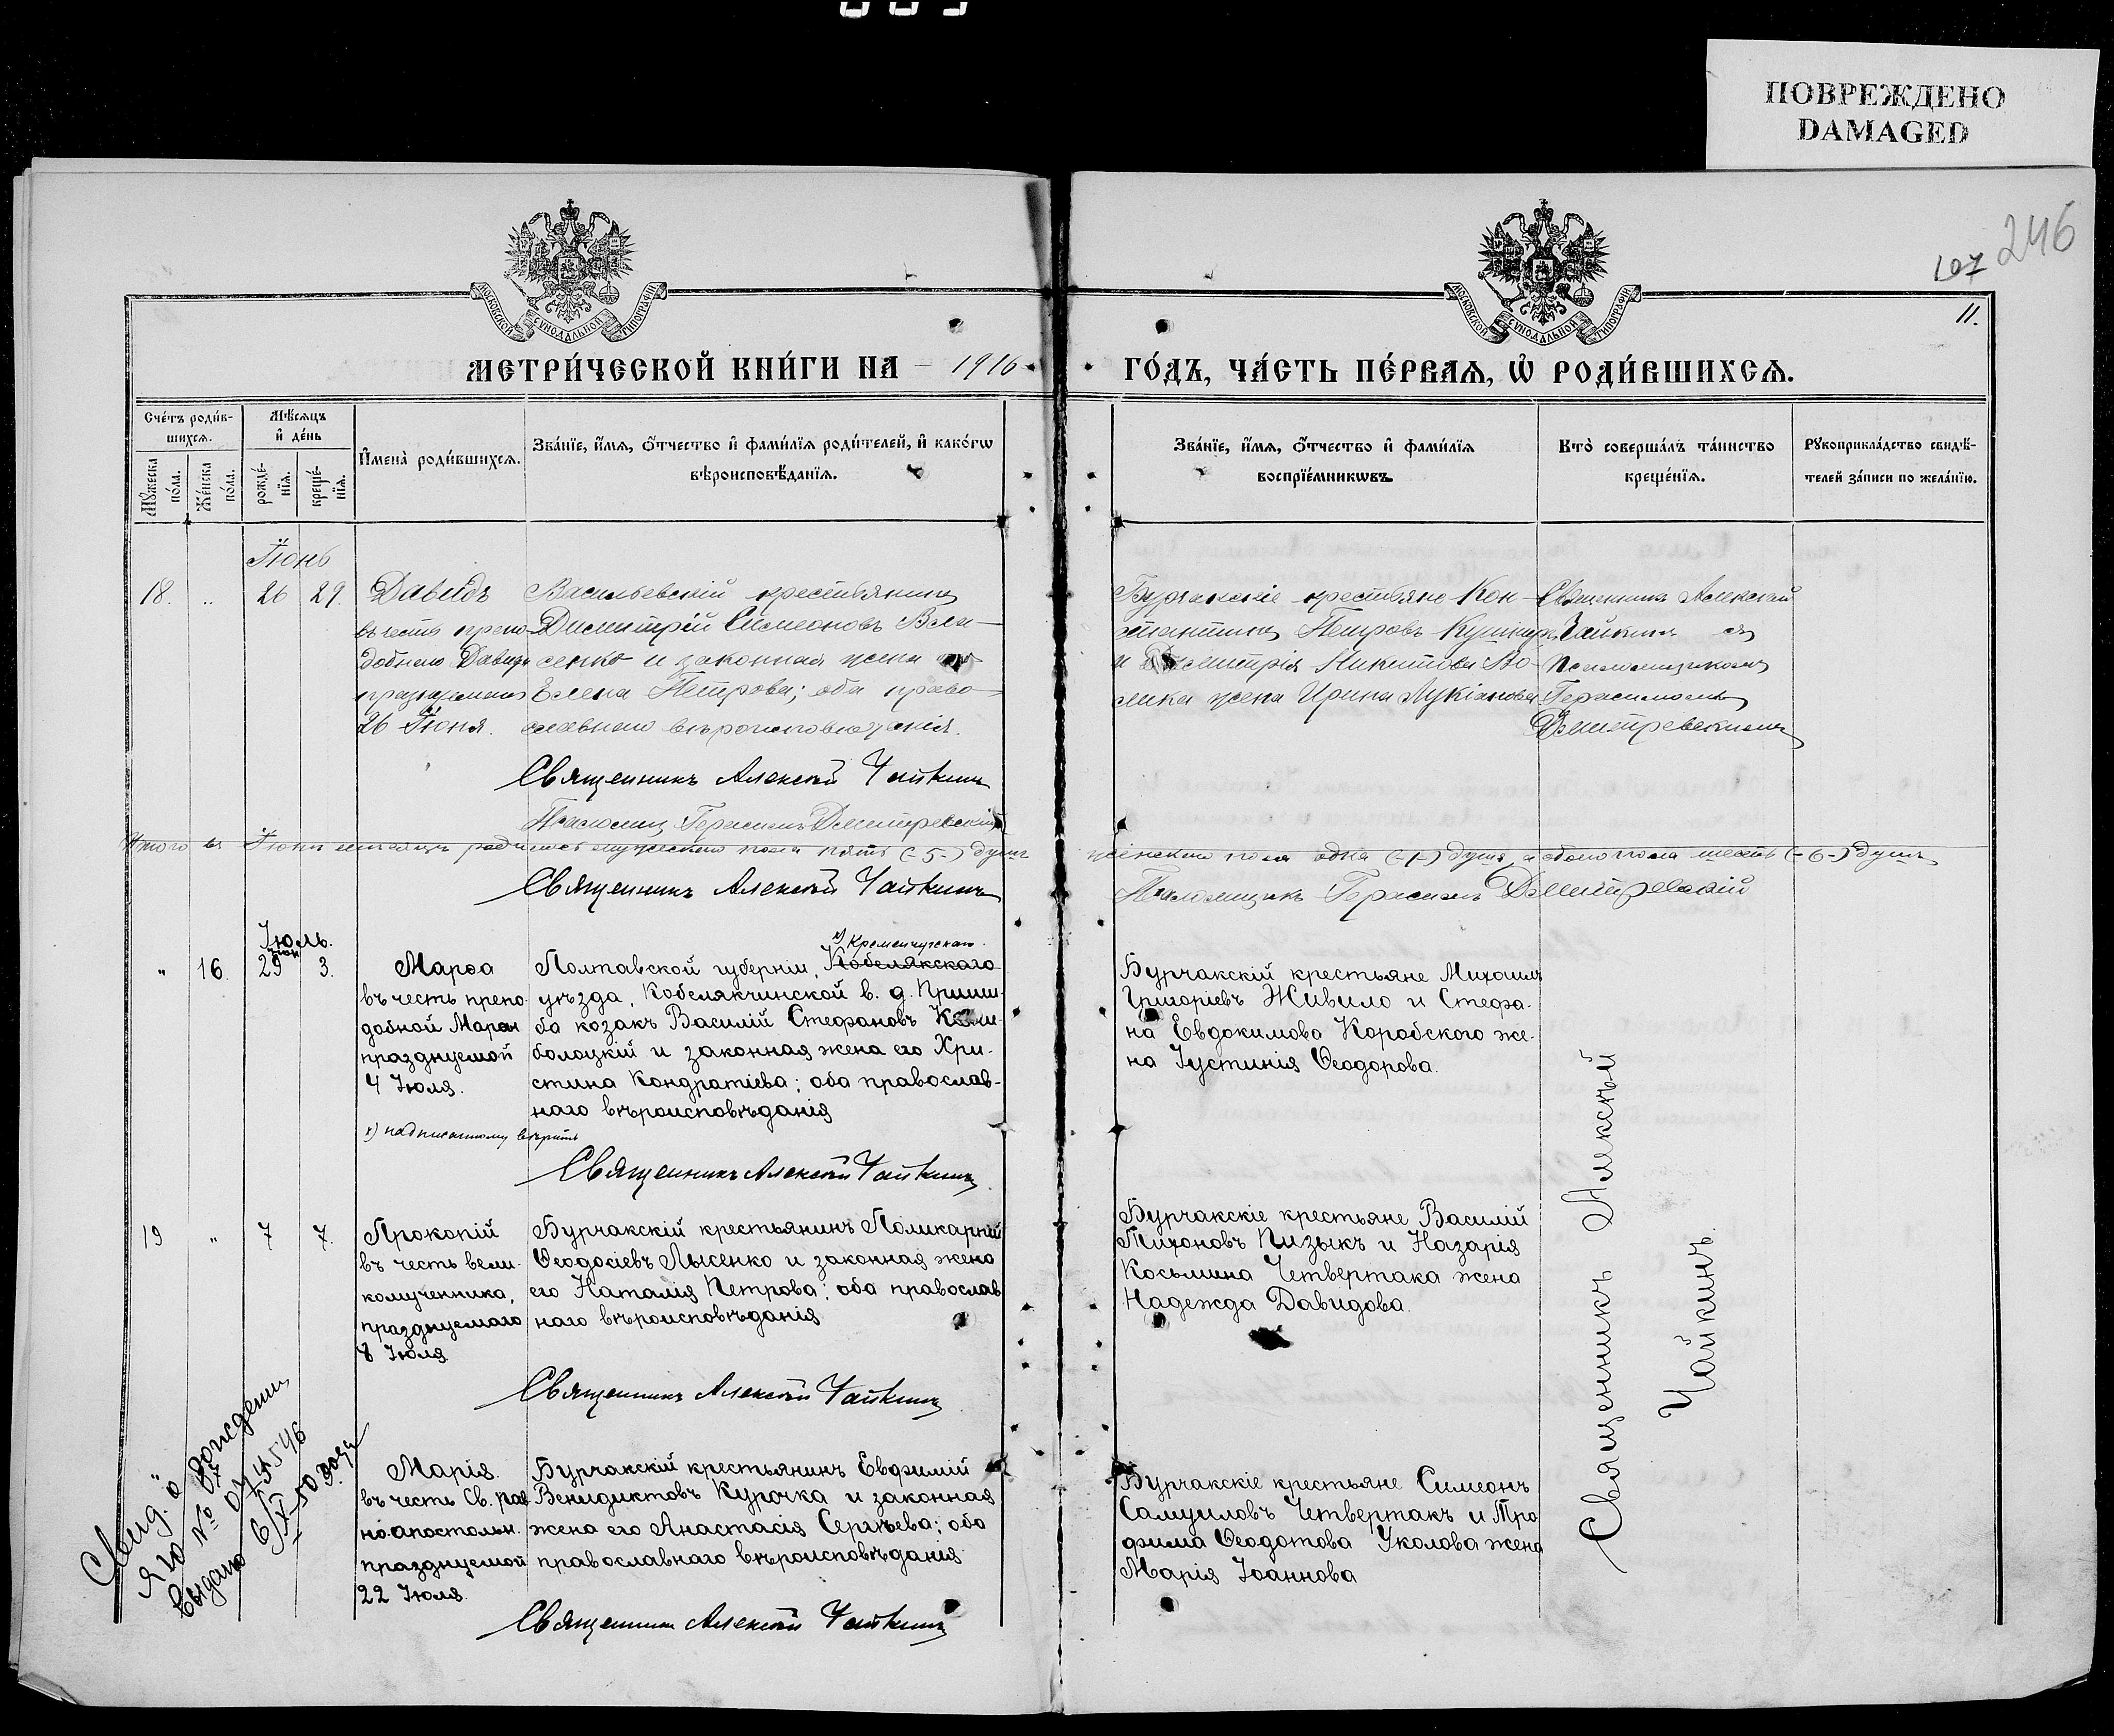 ПОВРЕЖДЕНО
DAMAGED
246
107
11.
МОСКОВСКОЙ СУНОДАЛЬНОЙ ТИПОГРАФІИ
МОСКОВСКОЙ СУНОДАЛЬНОЙ ТИПОГРАФІИ
МЕТРИ́ЧЕСКОЙ КНИ́ГИ НА 1916
ГО́ДЪ, ЧА́СТЬ ПЕ́РВАѦ, Ѡ҆ РОДИ́ВШИХСѦ.
Сче́тъ роди́в-
шихсѧ.
Мꙋ́жеска по́ла.
Же́нска по́ла.
Мѣ́сѧцъ
и҆ де́нь
рожде́-
нїѧ.
креще́-
нїѧ.
И҆мена̀ роди́вшихсѧ.
Зва́нїе, и҆́мѧ, ѻ҆́тчество и҆ фами́лїѧ роди́телей, и҆ како́гѡ
вѣроисповѣ́данїѧ.
Зва́нїе, и҆́мѧ, ѻ҆́тчество и҆ фами́лїѧ
воспрїе́мникѡвъ.
Кто̀ соверша́лъ та́инство
креще́нїѧ.
Рꙋкоприкла́дство свидѣ́-
телей за́писи по жела́нїю.
Іюнь
18. „ 26 29.
Давидъ
въ честь препо-
добнаго Давида
празднуемаго
26 Іюня.
Васильевскій крестьянинъ
Димитрій Симеоновъ Вла-
сенко и законная жена его
Елена Петрова; оба право-
славнаго вѣроисповѣданія.
Бурчакскіе крестьяне Кон-
стантинъ Петровъ Кушниръ
и Димитрія Никитова
жена Ирина Лукіанова
Священникъ Алексѣй
Чайкинъ съ
Псаломщикомъ
Герасимомъ
Димитревскимъ
Священникъ Алексѣй Чайкинъ
Псаломщ. Герасимъ Димитревскій
Итого въ Іюнѣ мѣсяцѣ родилось мужескаго пола пять (-5-) душъ женскаго пола одна (-1-) душа, а обоего пола шесть (-6-) душъ
Священникъ Алексѣй Чайкинъ
Псаломщикъ Герасимъ Димитревскій
Іюль.
„ 16. 29 іюн 3.
Марѳа
въ честь препо-
добной Марѳы
празднуемой
4 Іюля.
х) Кременчугскаго
Полтавской губерніи, Кобелякскаго
уѣзда, Кобелякчинской в. д. Приши-
ба козакъ Василій Стефановъ
болоцкій и законная жена его Хри-
стина Кондратіева; оба православ-
наго вѣроисповѣданія
х) надписанному вѣрить
Священникъ Алексѣй Чайкинъ
Бурчакскій крестьяне Михаилъ
Григоріевъ Живило и Стефа-
на Евдокимова Коробского же-
на Іустинія Ѳеодорова.
19 „ 7 7.
Прокопій
въ честь вели-
комученника,
празднуемаго
8 Іюля
Бурчакскій крестьянинъ Поликарпій
Ѳеодосіевъ Лысенко и законная жена
его Наталія Петрова; оба православ
наго вѣроисповѣданія
Священникъ Алексѣй Чайкинъ
Бурчакскіе крестьяне Василій
Тихоновъ Пизыкъ и Назарія
Косьмина Четвертака жена
Надежда Давидова.
Свид. о рождении
ЯЮ № 0745546
выдано 6/X 50 года
Марія.
въ честь Св. рав
но-апостольн.
празднуемой
22 Іюля
Бурчакскій крестьянинъ Евфимій
Венидиктовъ Курочка и законная
жена его Анастасія Сергѣева; оба
православнаго вѣроисповѣданія
Священникъ Алексѣй Чайкинъ
Бурчакскіе крестьяне Симеонъ
Самуиловъ Четвертакъ и Тро
фима Ѳеодотова Уколова жена
Марія Іоаннова
Священникъ Алексѣй
Чайкинъ.